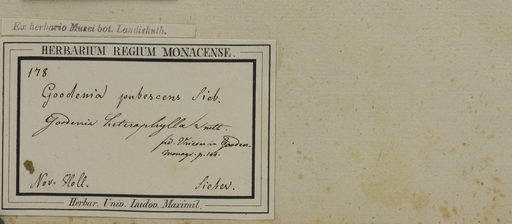 Ex herbario Musei bot. Landishuth.
HERBARIUM REGIUM MONACENSE.
178
Goodenia pubescens Sieb.
Goodenia heterophylla Smth.
fid. Vriese in Gooden.
monogr. p. 146.
Nov. Holl.
Sieber.
Herbar. Univ. Ludov. Maximil.